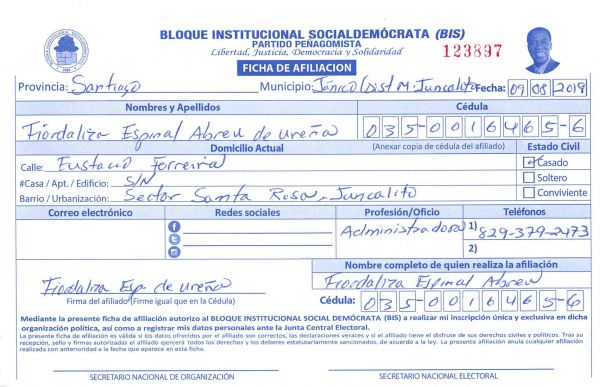 BLOQUE INSTITUCIONAL SOCIALDEMÓCRATA (BIS)
PARTIDO PEÑAGOMISTA
Libertad, Justicia, Democracia y Solidaridad
123897
FICHA DE AFILIACION
Provincia: Santiago Municipio: Jánico (Dist M. Juncalito Fecha: 09/08/2019
Nombres y Apellidos Cédula
Fiordaliza Espinal Abreu de ureña 035-0016465-6
Domicilio Actual (Anexar copia de cédula del afiliado) Estado Civil
Calle: Eustacio Ferreira Casado
#Casa / Apt. / Edificio: S/N Soltero
Barrio / Urbanización: Sector Santa Rosa, Juncalito Conviviente
Correo electrónico Redes sociales Profesión/Oficio Teléfonos
Administradora 1) 829-379-2473
2)
Nombre completo de quien realiza la afiliación
Fiordaliza Esp. de ureña Fiordaliza Espinal Abreu
Firma del afiliado (Firme igual que en la Cédula) Cédula: 035-0016465-6
Mediante la presente ficha de afiliación autorizo al BLOQUE INSTITUCIONAL SOCIAL DEMÓCRATA (BIS) a realizar mi inscripción única y exclusiva en dicha
organización política, así como a registrar mis datos personales ante la Junta Central Electoral.
La presente ficha de afiliación es válida si los datos ofrecidos por el afiliado son correctos, las declaraciones veraces y si el afiliado tiene el disfrute de sus derechos civiles y políticos. Tras su
recepción, sello y firmas autorizadas el afiliado ejercerá todos los derechos y los deberes estatutariamente sancionados, de acuerdo a la ley. La presente afiliación anula cualquier afiliación
realizada con anterioridad a la fecha que aparece en esta ficha.
SECRETARIO NACIONAL DE ORGANIZACIÓN SECRETARIO NACIONAL ELECTORAL